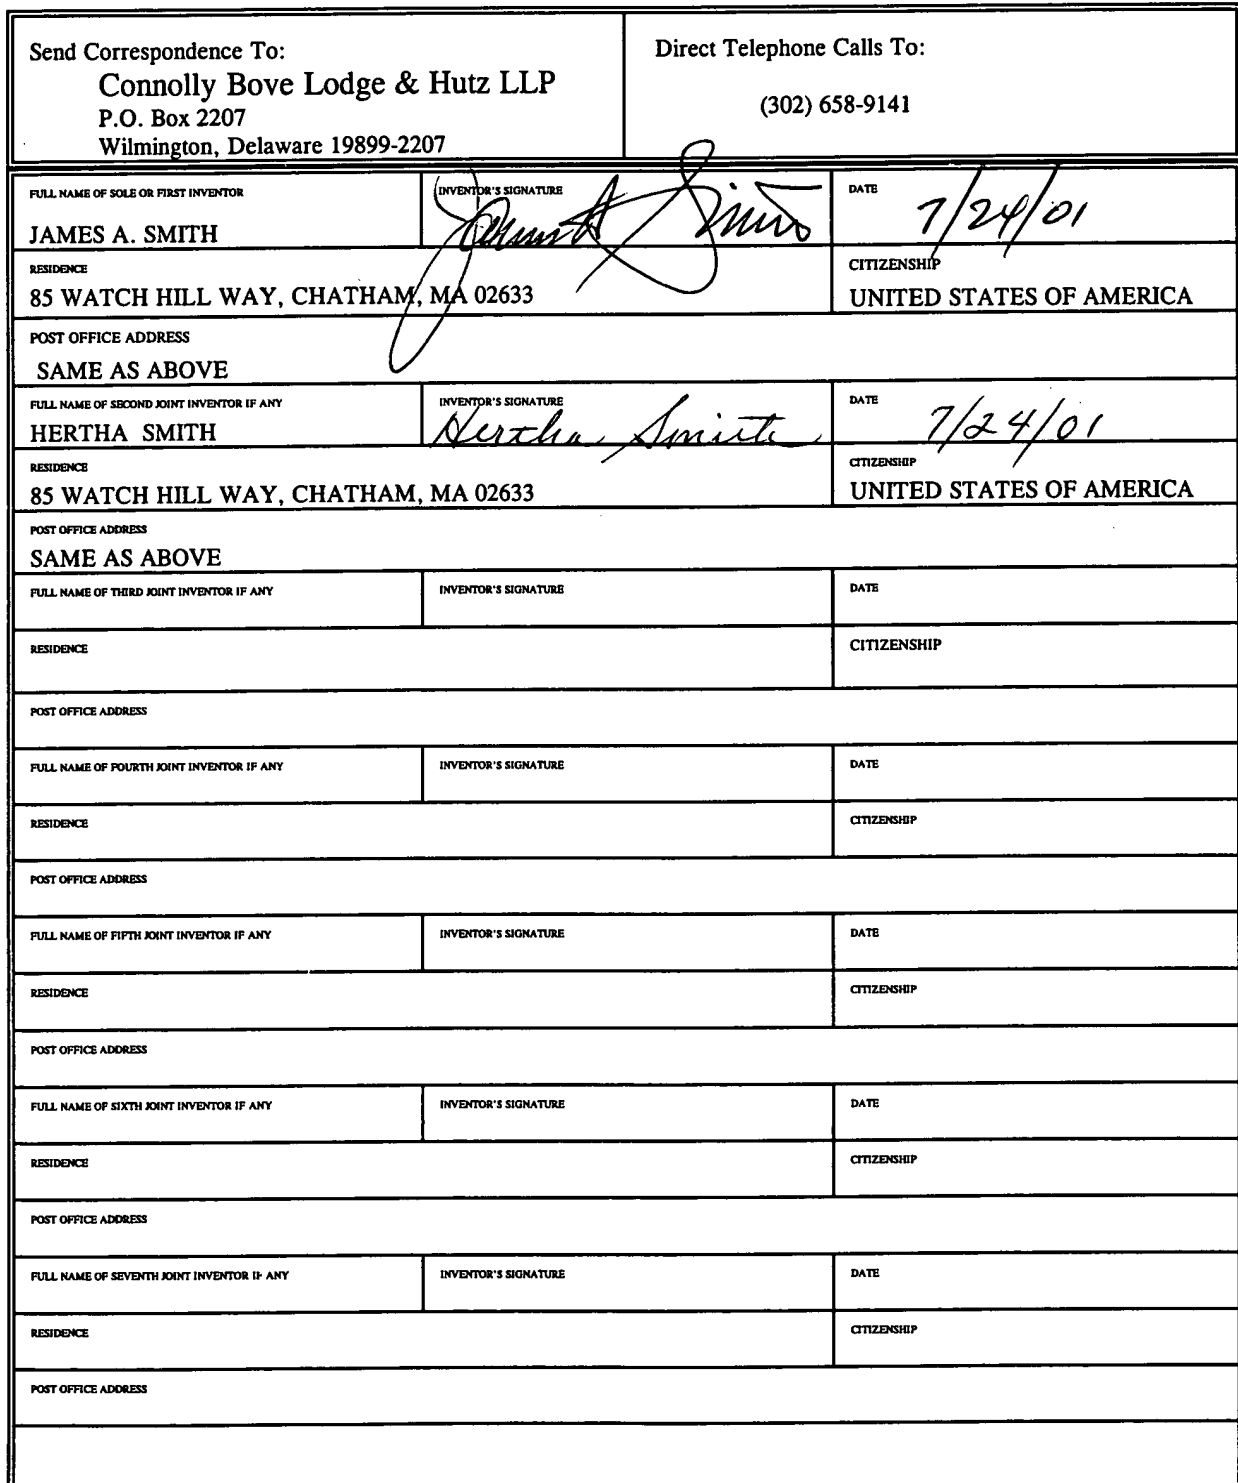 Send Correspondence To:
Connolly Bove Lodge & Hutz LLP
P.O. Box 2207
Wilmington, Delaware 19899-2207
Direct Telephone Calls To:
(302) 658-9141
FULL NAME OF SOLE OR FIRST INVENTOR
JAMES A. SMITH
INVENTOR'S SIGNATURE
James A Smith
DATE
7/24/01
RESIDENCE
85 WATCH HILL WAY, CHATHAM, MA 02633
CITIZENSHIP
UNITED STATES OF AMERICA
POST OFFICE ADDRESS
SAME AS ABOVE
FULL NAME OF SECOND JOINT INVENTOR IF ANY
HERTHA SMITH
INVENTOR'S SIGNATURE
Hertha Smith
DATE
7/24/01
RESIDENCE
85 WATCH HILL WAY, CHATHAM, MA 02633
CITIZENSHIP
UNITED STATES OF AMERICA
POST OFFICE ADDRESS
SAME AS ABOVE
FULL NAME OF THIRD JOINT INVENTOR IF ANY
INVENTOR'S SIGNATURE
DATE
RESIDENCE
CITIZENSHIP
POST OFFICE ADDRESS
FULL NAME OF FOURTH JOINT INVENTOR IF ANY
INVENTOR'S SIGNATURE
DATE
RESIDENCE
CITIZENSHIP
POST OFFICE ADDRESS
FULL NAME OF FIFTH JOINT INVENTOR IF ANY
INVENTOR'S SIGNATURE
DATE
RESIDENCE
CITIZENSHIP
POST OFFICE ADDRESS
FULL NAME OF SIXTH JOINT INVENTOR IF ANY
INVENTOR'S SIGNATURE
DATE
RESIDENCE
CITIZENSHIP
POST OFFICE ADDRESS
FULL NAME OF SEVENTH JOINT INVENTOR IF ANY
INVENTOR'S SIGNATURE
DATE
RESIDENCE
CITIZENSHIP
POST OFFICE ADDRESS